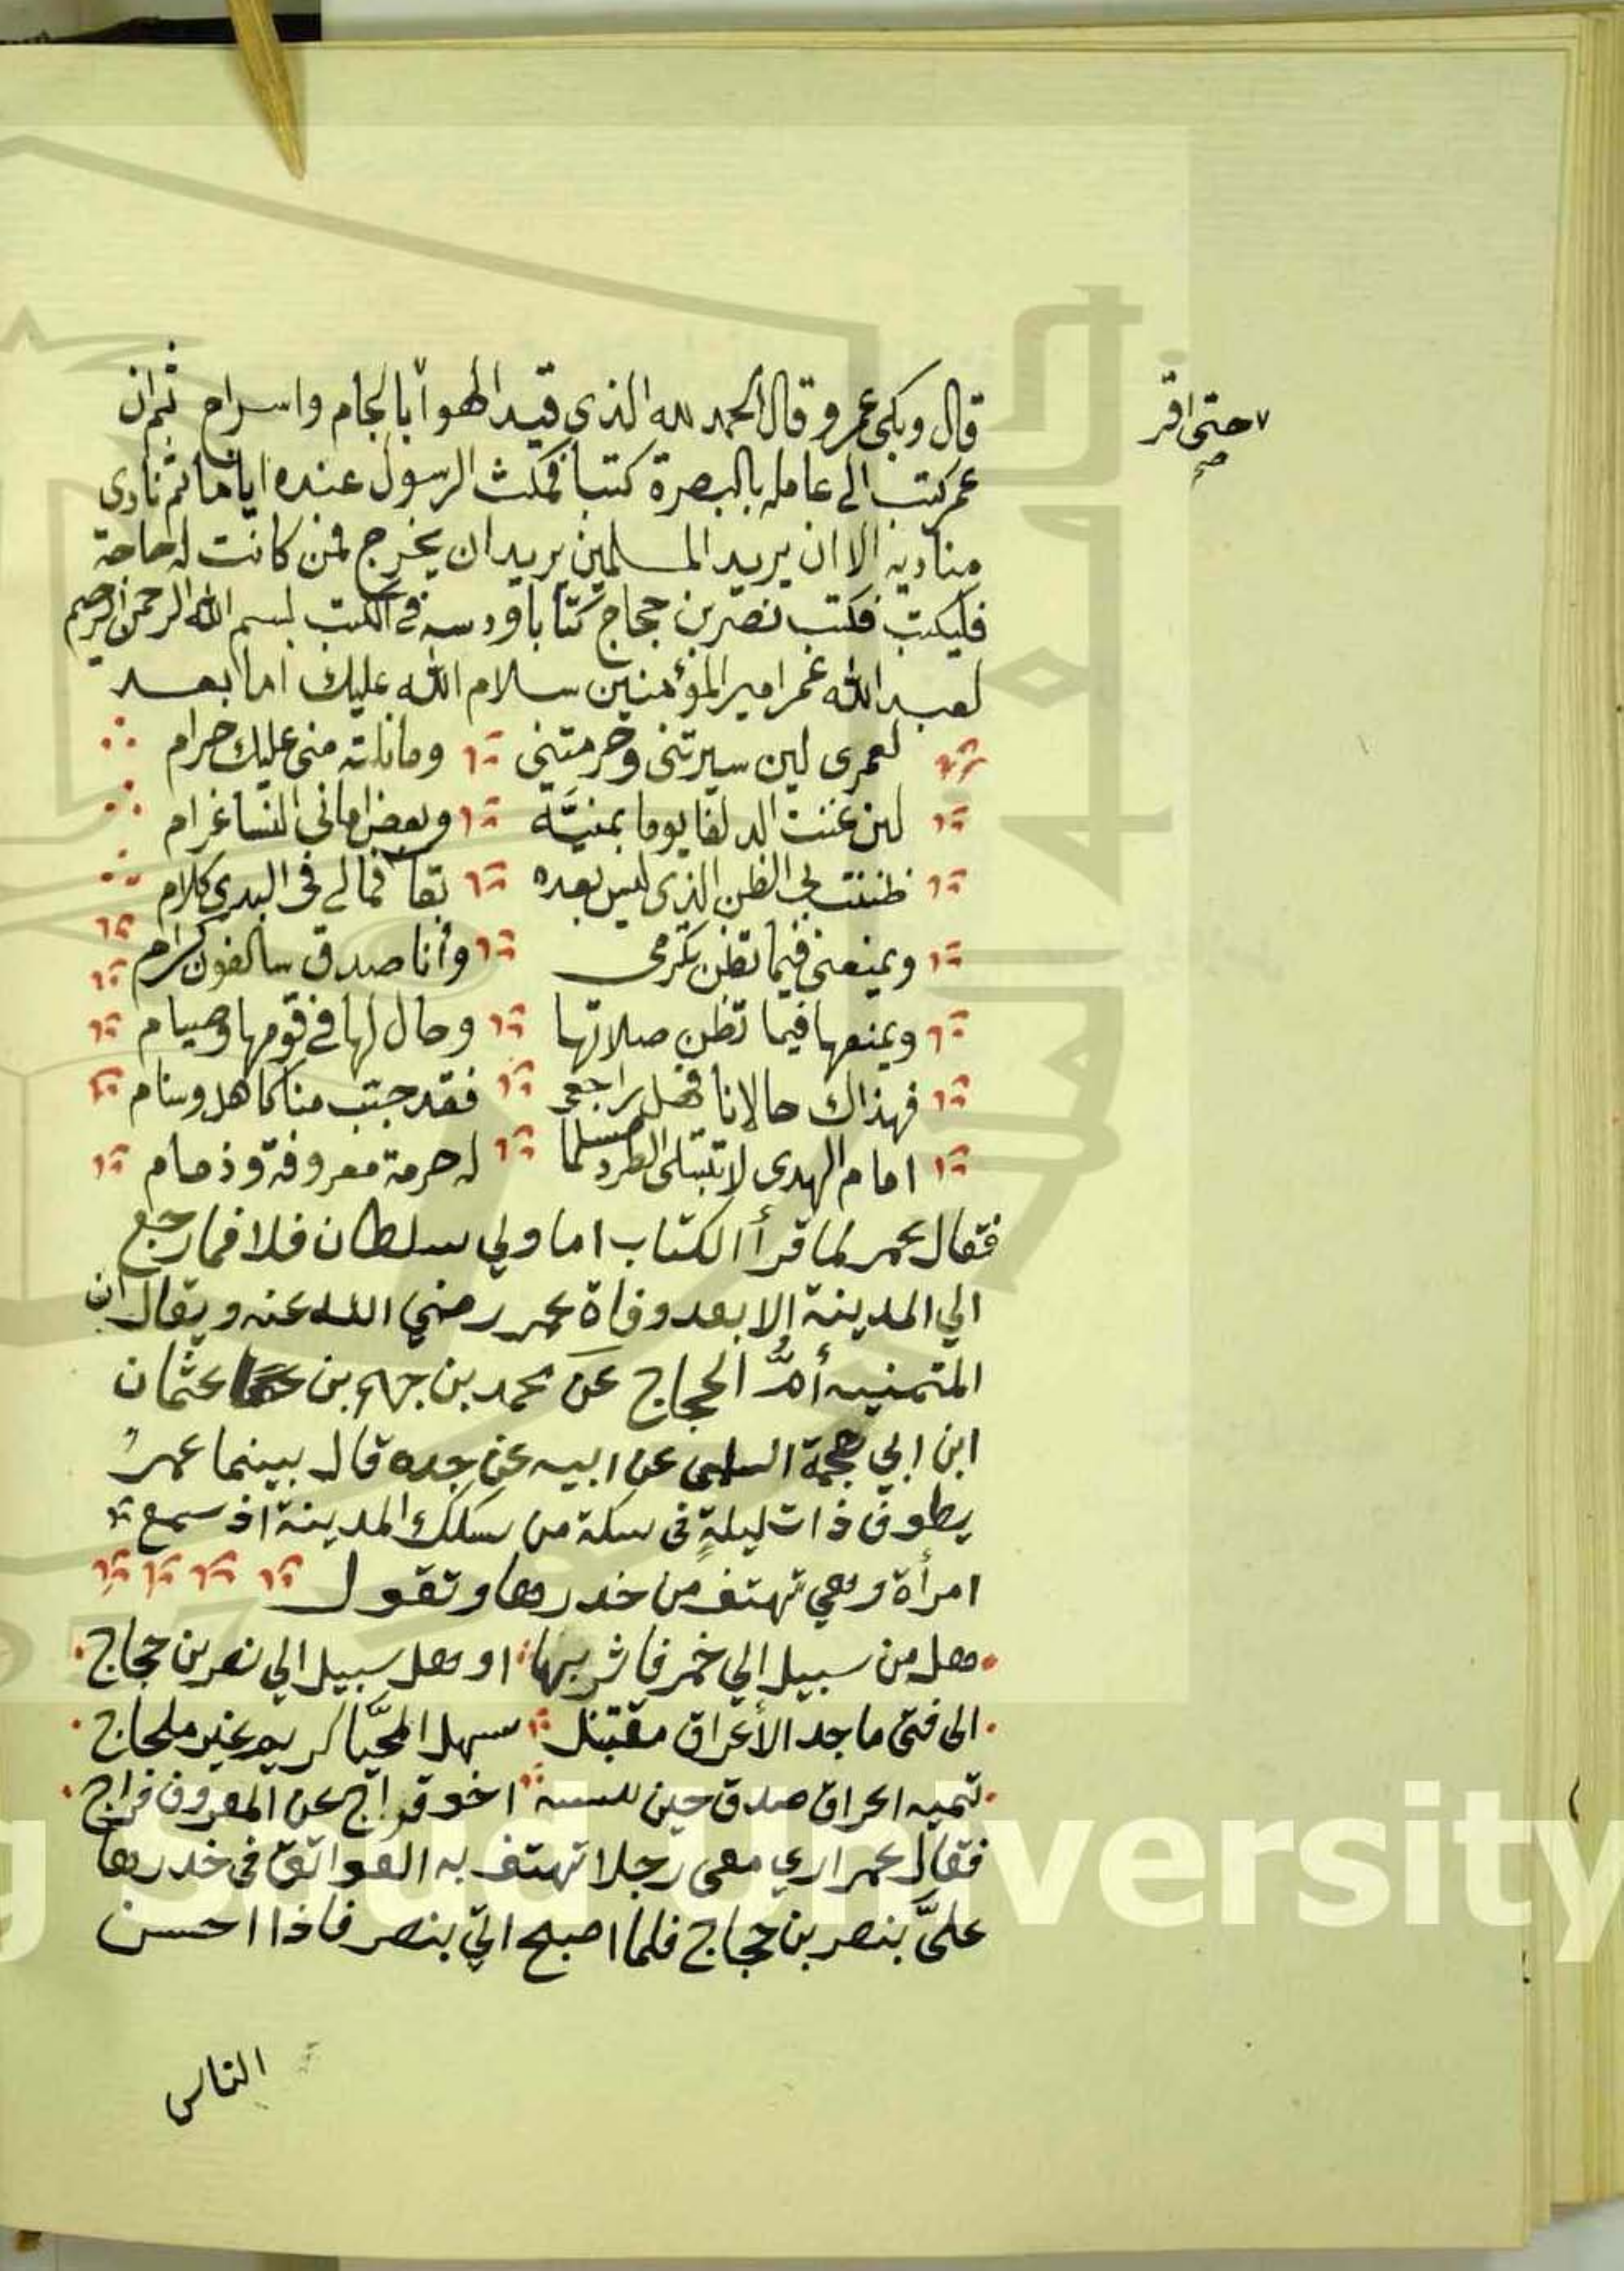 قال وبكى عمر وقال الحمد لله الذي قيد الهوا بالجام واسراج ثم ان
حتى اقر
صح
عمر كتب الى عامله بالبصرة كتبا فمكث الرسول عنده اياما ثم نادى
مناديه الا ان يريد المسلمين يريد ان يخرج فمن كانت له حاجة
فليكتب فكتب نصر بن حجاج كتابا ودسه في الكتب بسم الله الرحمن الرحيم
لعبد الله عمر امير المؤمنين سلام الله عليك اما بعد
لعمرى لين سيرتنى وحرمتينى وما نلته منى عليك حرام
لين غنت الدلفا يوما بمنيَّة وبعض امانى النسا غرام
ظننت بى الظن الذى ليس بعده بقا فمالى فى الندى كلام
ويمنعنى فيما تظن تكرمى وأنا صدق سالفون كرام
ويمنعها فيما تظن صلاتها وحال لها فى قومها وصيام
فهذاك حالانا فهل راجعى فقد جبّ منا كاهل وسنام
امام الهدى لا تبتلى الطرد مسلما له حرمة معروفة وذمام
فقال عمر لما قرأ الكتاب اما ولي سلطان فلا فما رجع
الي المدينة إلا بعد وفاة عمر رضي الله عنه ويقال ان
المتمنيه أمُّ الحجاج عن محمد بن جهم بن عثمان
ابن ابي جهمة السلمى عن ابيه عن جده قال بينما عمرُ
يطوف ذات ليلةٍ فى سكة من سكك المدينة اذ سمع
امرأة وهي تهتف من خدرها وتقول
هل من سبيل إلي خمر فاشربها او هل سبيل الي نصر بن حجاج
الى فتى ماجد الأعراق مقتبل سهل المحيَّا كريم غير ملجاج
تميه اعراق صدق حين اخو قراج عن المعروف فراج
فقال عمر اري معى رجلا تهتف به العواتق فى خدرها
علىَّ بنصر بن حجاج فلما اصبح اتي بنصر فاذا احسن
الناس
King Saud University